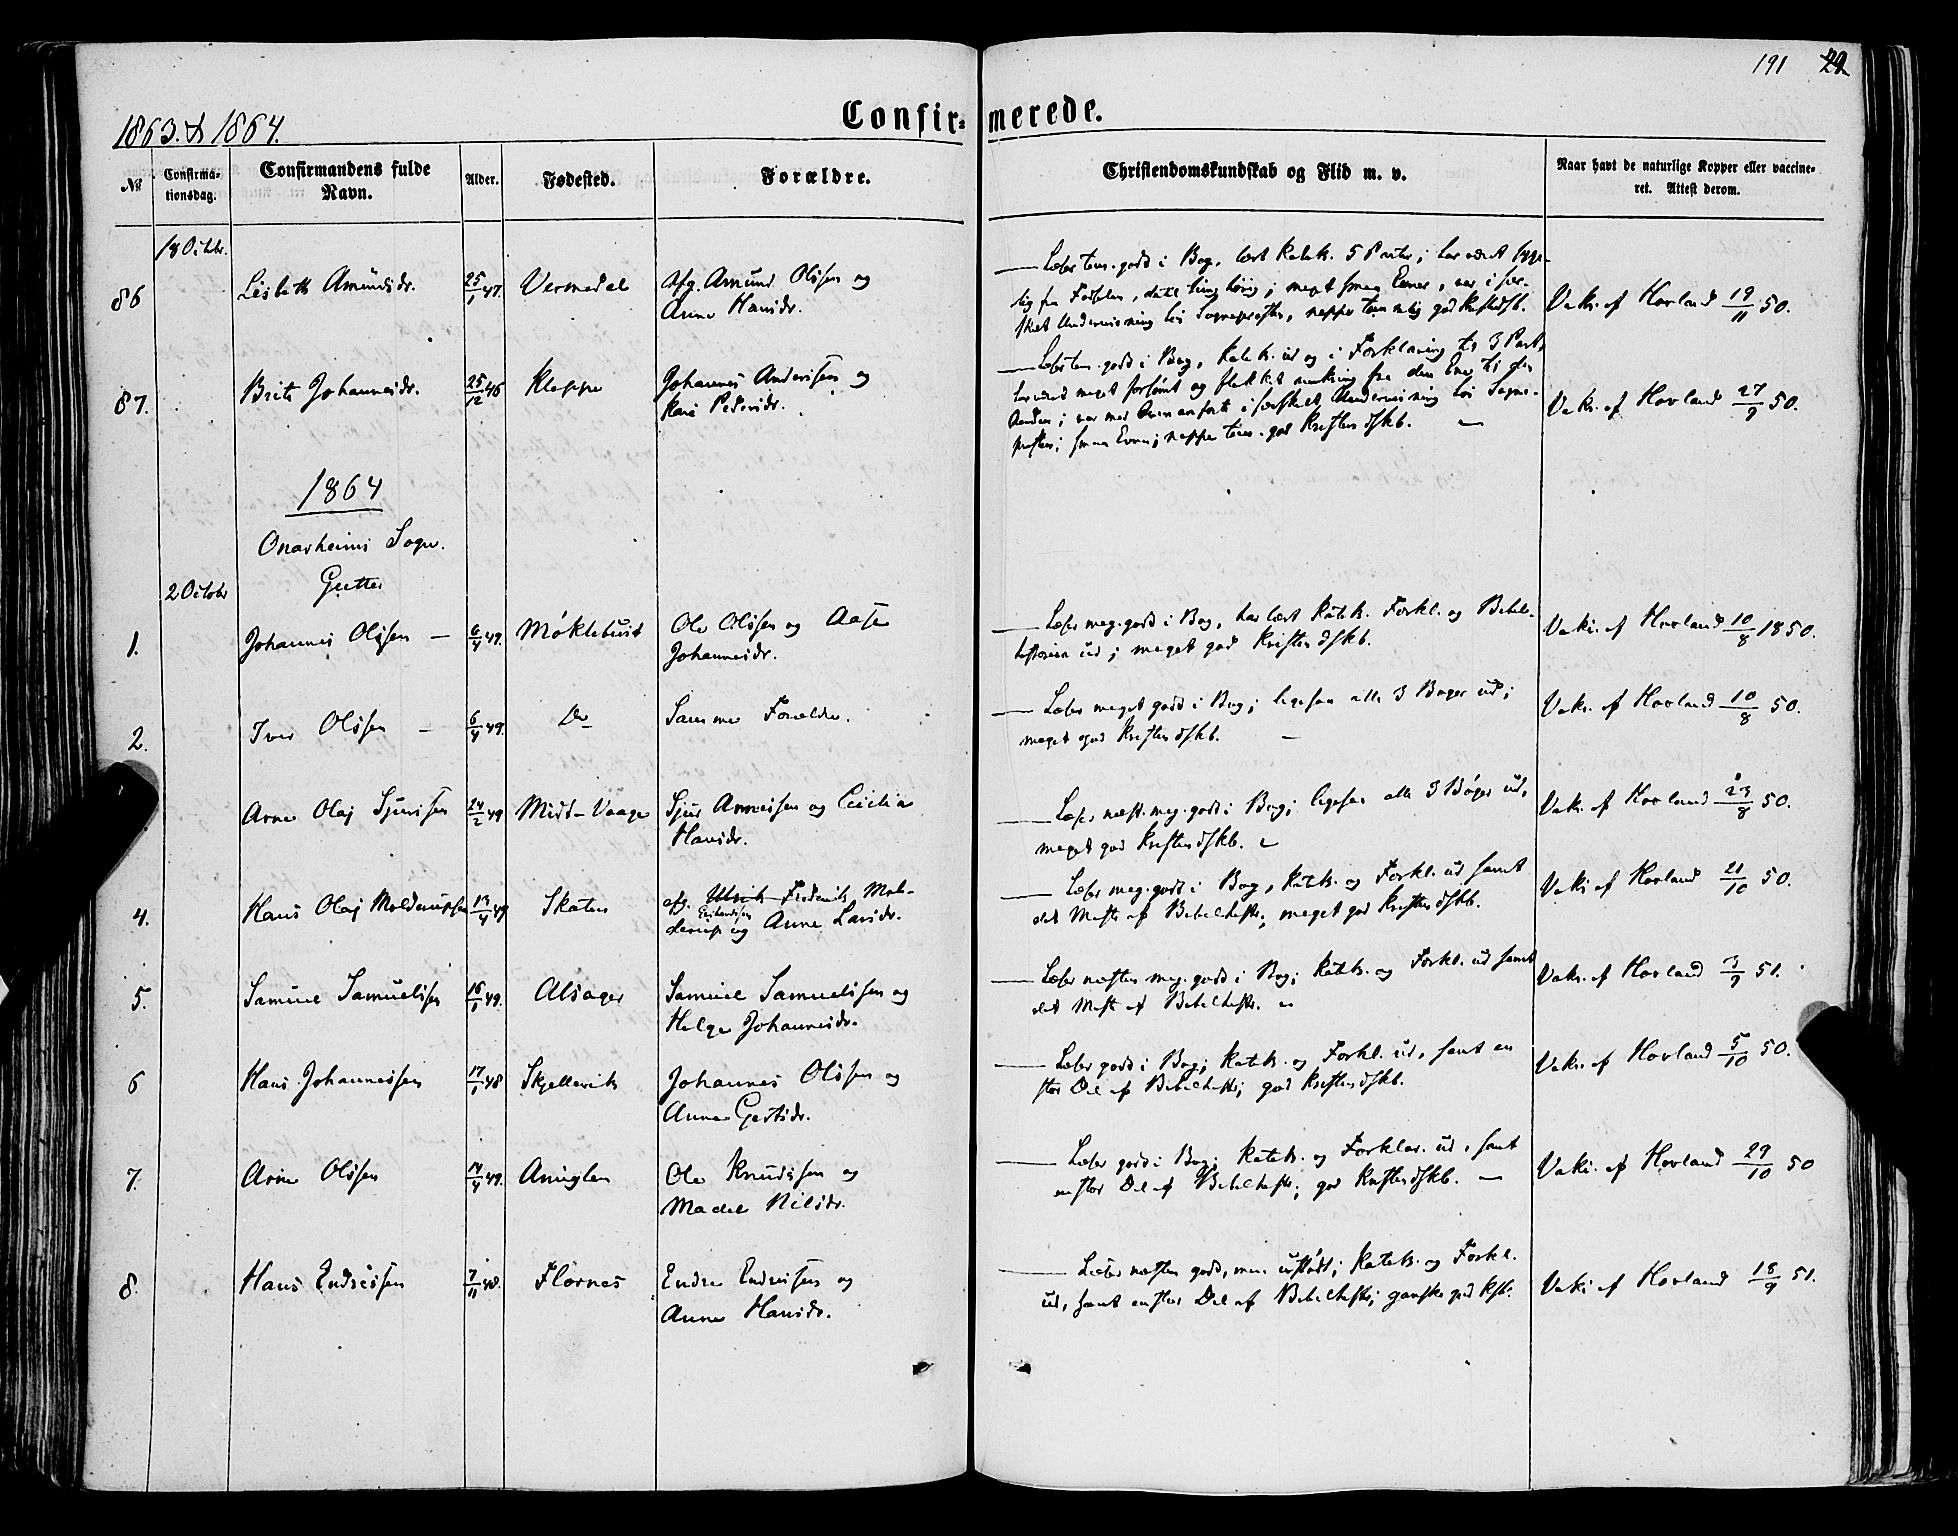 191 22
Confirmerede.
1863. & 1864.
№ Confirmationsdag. Confirmandens fulde Navn. Alder. Fødested. Forældre. Christendomskundskab og Flid m. v. Naar havt de naturlige Kopper eller vaccineret. Attest derom.
18 Octbr.
86 Lisbeth Amundsdr. 25/1 47. Vermedal Afg. Amund Olsen og
Anne Hansdr.
Læser tem. godt i Bog, lært Katek. 5 Parter; har været syge-
lig fra Fødselen, meget smaa Evner, var i sær-
skilt Undervisning hos Sognepresten, neppe temmelig god Kristdskb.
Vaks. af Hovland 19/11 50.
87. Brite Johannesdr. 25/12 46 Kleppe Johannes Andersen og
Kari Pedersdr.
Læser tem. godt i Bog, Katek. ud og i Forklaring til 3 Part,
har været meget forsømt og flakket omkring fra den Ene til den
Anden; var med Ovenanførte i særskilt Undervisning hos Sogne-
presten; smaa Evner; neppe tem. god Kristendskb.
Vaks. af Hovland 27/9 50.
1864
Onarheims Sogn.
Gutter
2 Octobr
1. Johannes Olsen 6/4 49. Møklebust Ole Olsen og Aase
Johannesdr.
Læser meg. godt i Bog, har lært Katek. Forkl. og Bibel-
historien ud; meget god Kristendskb.
Vaks. af Hovland 10/8 1850.
2. Iver Olsen 6/4 49. Do Samme Forældre.
Læser meget godt i Bog; ligesaa alle 3 Bøger ud;
meget god Kristendskb.
Vaks. af Hovland 10/8 50.
Arne Olaj Sjursen 24/2 49 Midt-Vaage Sjur Arnesen og Cecilia
Hansdr.
Læser næst. meg. godt i Bog; ligesaa alle 3 Bøger ud,
meget god Kristendskb.
Vaks. af Hovland 23/8 50.
4. Hans Olaj Molderupsen 13/4 49 Skaten afg. Ulrik Frederik Mol-
derup og Anne Larsdr.
Læser meg. godt i Bog, Katek. og Forkl. ud samt
det Meste af Bibelhist.; meget god Kristendskb.
Vaks. af Hovland 21/10 50.
5. Samuel Samuelsen 16/1 49. Alsager Samuel Samuelsen og
Helga Johannesdr.
Læser næsten meg. godt i Bog; Katek. og Forkl. ud samt
det Mest af Bibelhistr.
Vaks. af Hovland 3/9 51.
6 Hans Johannessen 17/1 48 Skjellevik Johannes Olsen og
Anna Gertsdr.
Læser godt i Bog; Katek. og Forkl. ud, samt en
stor Del af Bibelhistr; god Kristendskb.
Vaks. af Hovland 5/10 50.
7. Arne Olsen 14/4 49. Anuglen Ole Knudsen og
Madel Nilsdr.
Læser godt i Bog; Katek. og Forklar. ud, samt
en stor Del af Bibelhistr.; god Kristendskb.
Vaks. af Hovland 29/10 50
8. Hans Endresen 7/11 48. Flornes Endre Endresen og
Anna Hansdr.
Læser næsten godt, men ustødt; Katek. og Forkl.
ud, samt en stor Del af Bibelhistr; ganske god Ksb.
Vaks. af Hovland 18/9 51.